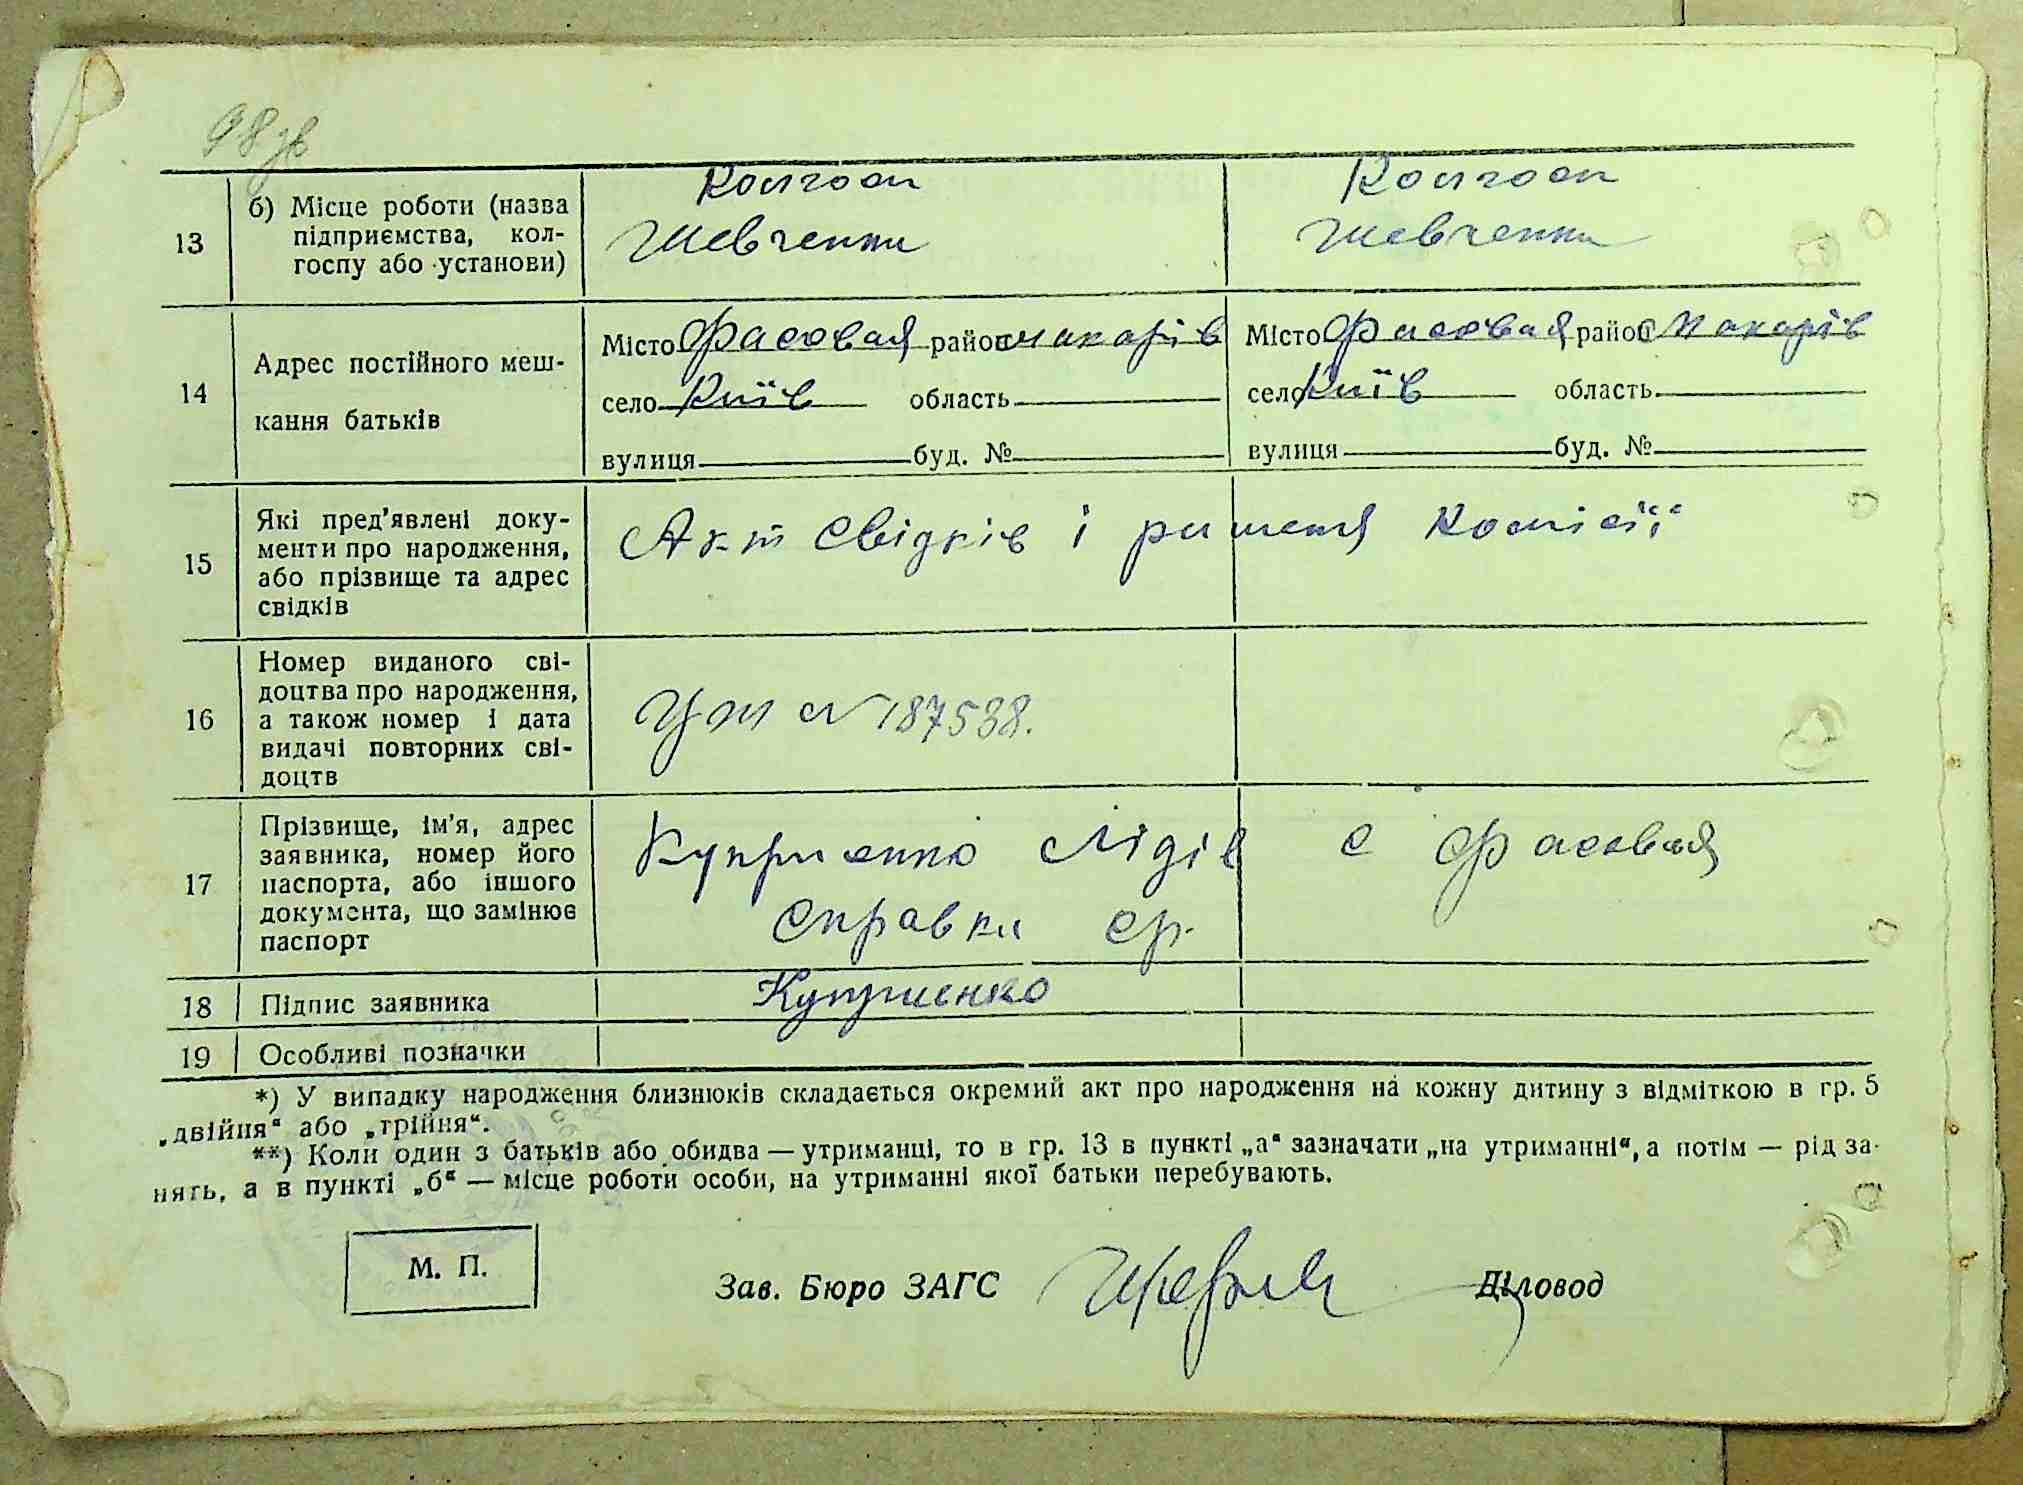 98зв
13 б) Місце роботи (назва підприємства, кол-госпу або установи)
Колгосп Шевченка
Колгосп Шевченка
14 Адрес постійного меш-кання батьків
Місто Фасовая район Макарів
село Київ область
вулиця буд. №
Місто Фасовая район Макарів
село Київ область
вулиця буд. №
15 Які пред'явлені доку-менти про народження, або прізвище та адрес свідків
Акт свідків і ришеня комісії
16 Номер виданого сві-доцтва про народження, а також номер і дата видачі повторних сві-доцтв
№ 187538.
17 Прізвище, ім'я, адрес заявника, номер його паспорта, або іншого документа, що замінює паспорт
Куприенко Лідія с Фасовая
Справка ср.
18 Підпис заявника
Куприенко
19 Особливі позначки
*) У випадку народження близнюків складається окремий акт про народження на кожну дитину з відміткою в гр. 5
„двійня“ або „трійня“.
**) Коли один з батьків або обидва — утриманці, то в гр. 13 в пункті „а“ зазначати „на утриманні“, а потім — рід за-
нять, а в пункті „б“ — місце роботи особи, на утриманні якої батьки перебувають.
М. П.
Зав. Бюро ЗАГС Діловод